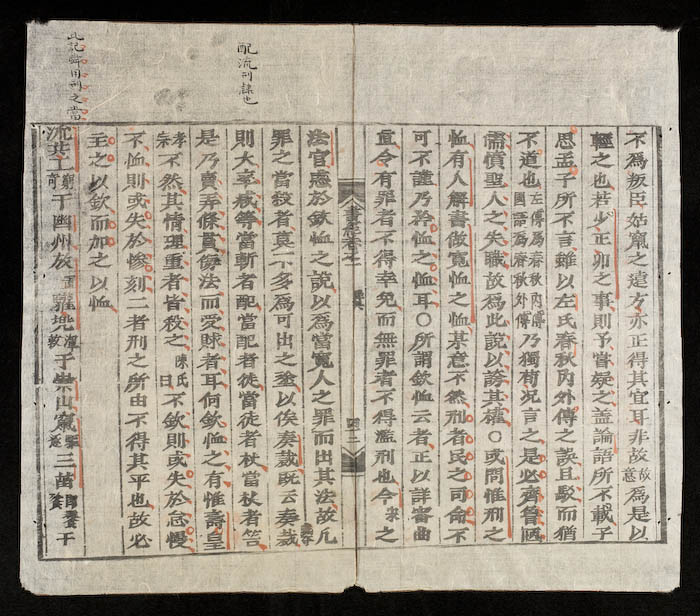 配流刑隸也
此記舜用刑之當
不爲叛臣姑竄之遠方亦正得其宜耳非故故意爲是以
輕之也若少正卯之事則予嘗疑之盖論語所不載子
思孟子所不言雖以左氏春秋內外傳之誣且駁而猶
不道也左傳爲春秋內傳國語爲春秋外傳乃獨荀况言之是必齊魯陋
儒憤聖人之失職故爲此說以誇其權○或問惟刑之
恤有人解書做寬恤之恤某意不然刑者民之司命不
可不謹乃矜恤之恤耳○所謂欽恤云者正以詳審曲
直令有罪者不得幸免而無罪者不得濫刑也今宋之
書卷之一
四十二
法官惑於欽恤之說以爲當寬人之罪而出其法故凡
罪之當殺者莫不多爲可出之塗以俟奏裁旣云奏裁
則大率减等當斬者配當配者徒當徒者杖當杖者笞
是乃賣弄條貫侮法而受賕者耳何欽恤之有惟壽皇
孝宗不然其情理重者皆殺之陳氏曰不欽則或失於怠慢
不恤則或失於慘刻二者刑之所由不得其平也故必
主之以欽而加之以恤
流共工窮奇于幽州放驩兜渾敦于崇山竄三苗饕餮于